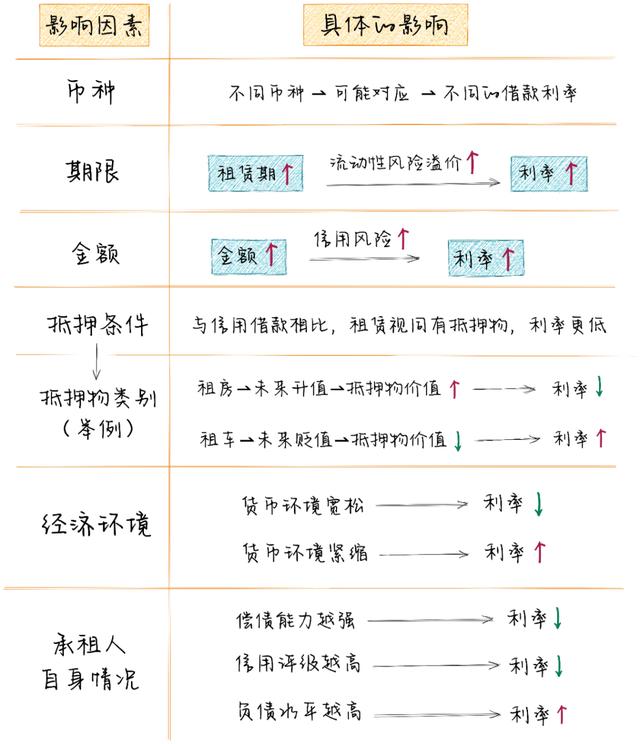 影响因素
具体的影响
币种
不同币种→可能对应→不同的借款利率
期限
租赁期↑
流动性风险溢价↑
利率↑
金额
金额↑
信用风险↑
利率↑
抵押条件
与信用借款相比，租赁视同有抵押物，利率更低
抵押物类别
（举例）
租房→未来升值→抵押物价值↑
利率↓
租车→未来贬值→抵押物价值↓
利率↑
经济环境
货币环境宽松
利率↓
货币环境紧缩
利率↑
承租人
自身情况
偿债能力越强
利率↓
信用评级越高
利率↓
负债水平越高
利率↑